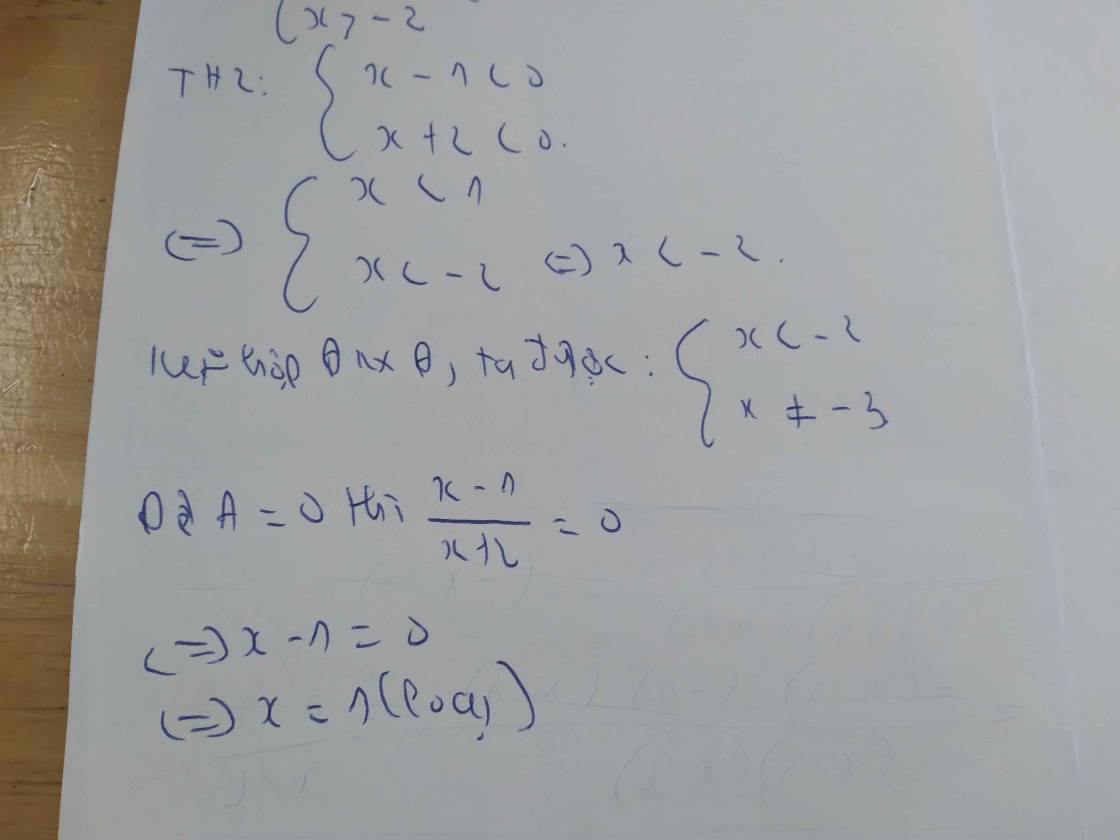 x > -2
TH2: { x - 1 < 0
x + 2 < 0.
<=> { x < 1
x < -2 <=> x < -2.
Kết hợp ĐKXĐ, ta được: { x < -2
x ≠ -3
Để A = 0 thì (x - 1)/(x + 2) = 0
<=> x - 1 = 0
<=> x = 1 (loại)